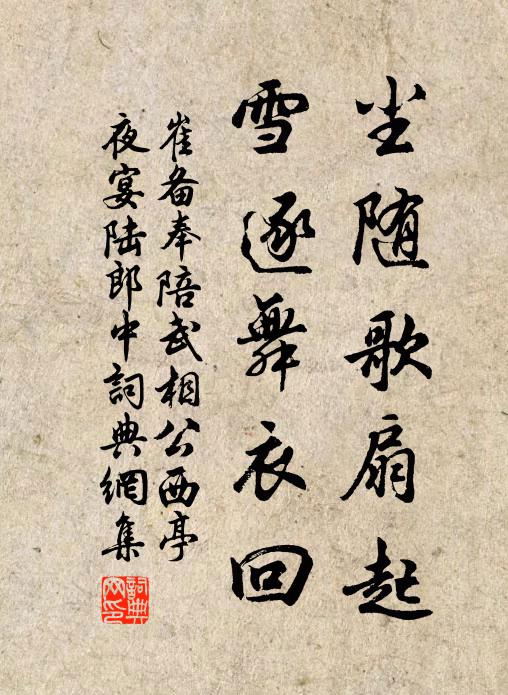 尘随歌扇起
雪逐舞衣回
崔备奉陪武相公西亭
夜宴陆郎中詞典網集
詞典网印